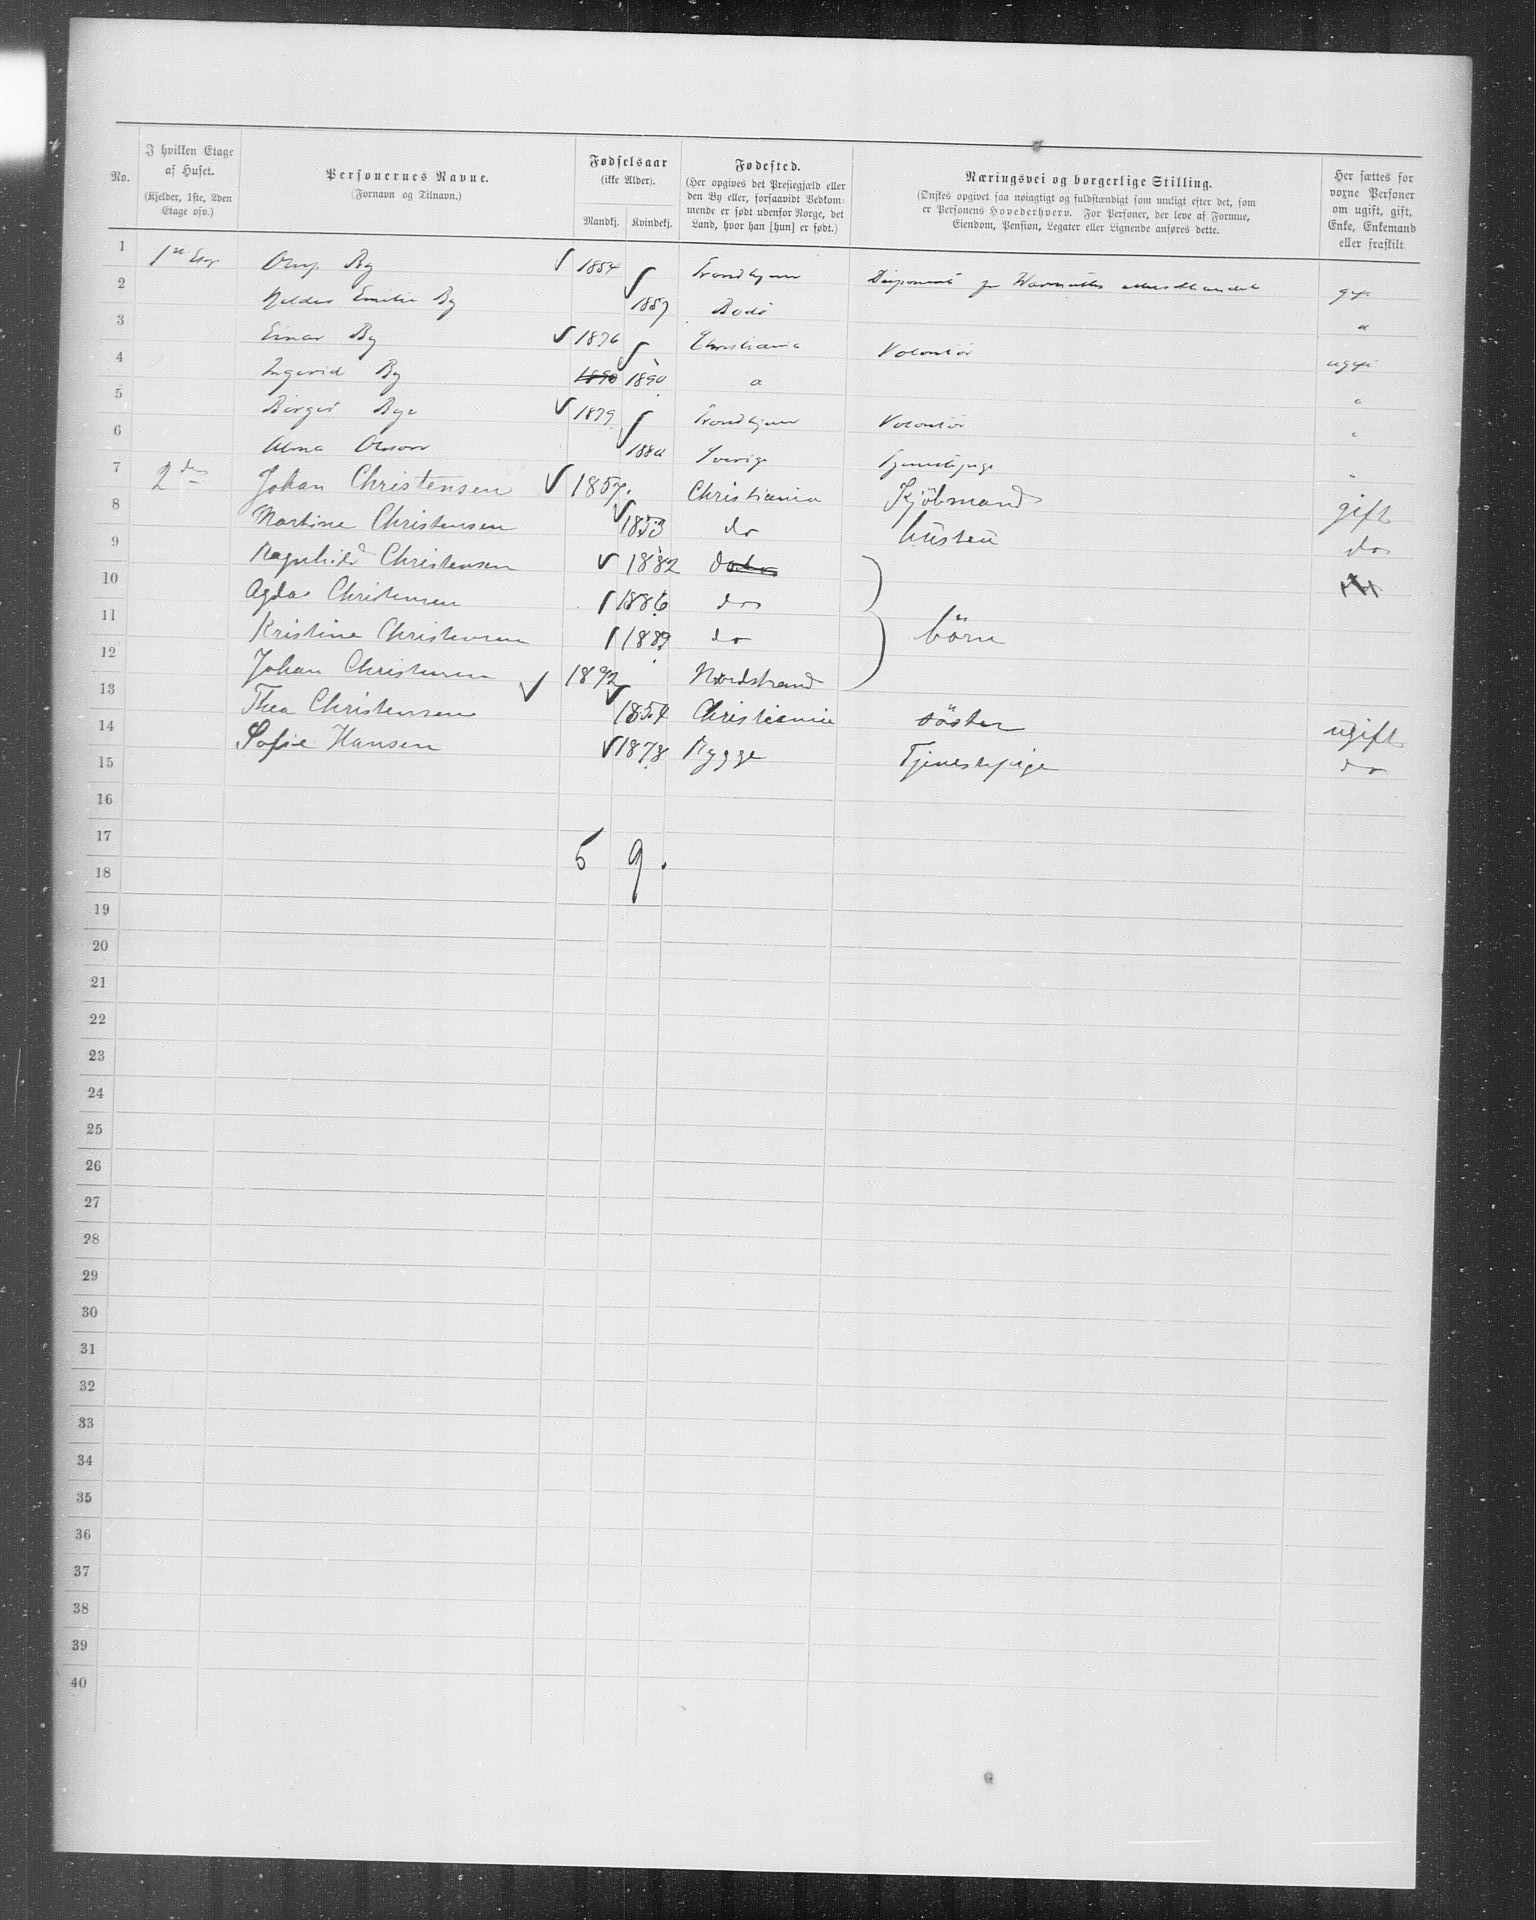 No.
I hvilken Etage af Huset.
(Kjelder, 1ste, 2den Etage osv.)
Personernes Navne.
(Fornavn og Tilnavn.)
Fødselsaar
(ikke Alder).
Mandkj. Kvindekj.
Fødested.
(Her opgives det Præstegjæld eller den By eller, forsaavidt Vedkommende er født udenfor Norge, det Land, hvor han [hun] er født.)
Næringsvei og borgerlige Stilling.
(Ønskes opgivet saa nøiagtigt og fuldstændigt som muligt efter det, som er Personens Hovederhverv. For Personer, der leve af Formue, Eiendom, Pension, Legater eller Lignende anføres dette.
Her sættes for voxne Personer om ugift, gift, Enke, Enkemand eller fraskilt.
1 1ste By 1854 Trondhjem Disponent gift
2 Emilie By 1857 Bodø "
3 Einar By 1876 Christiania Volontør ugift
4 Ingerid By 1890 1890 "
5 Birger Bye 1879 Trondhjem Volontør "
6 Alma 1880 Sverige Tjenestepige "
7 2den Johan Christensen 1857. Christiania Kjöbmand gift
8 Martine Christensen 1853 do hustru do
9 Ragnhild Christensen 1882
10 Agda Christensen 1886 do
11 Kristine Christensen 1889 do börn
12 Johan Christensen 1892 Nordstrand
13 Thea Christensen 1854 Christiania söster ugift
14 Sofie Hansen 1878 Rygge Tjenestepige do
15
16
17
5 9.
18
19
20
21
22
23
24
25
26
27
28
29
30
31
32
33
34
35
36
37
38
39
40